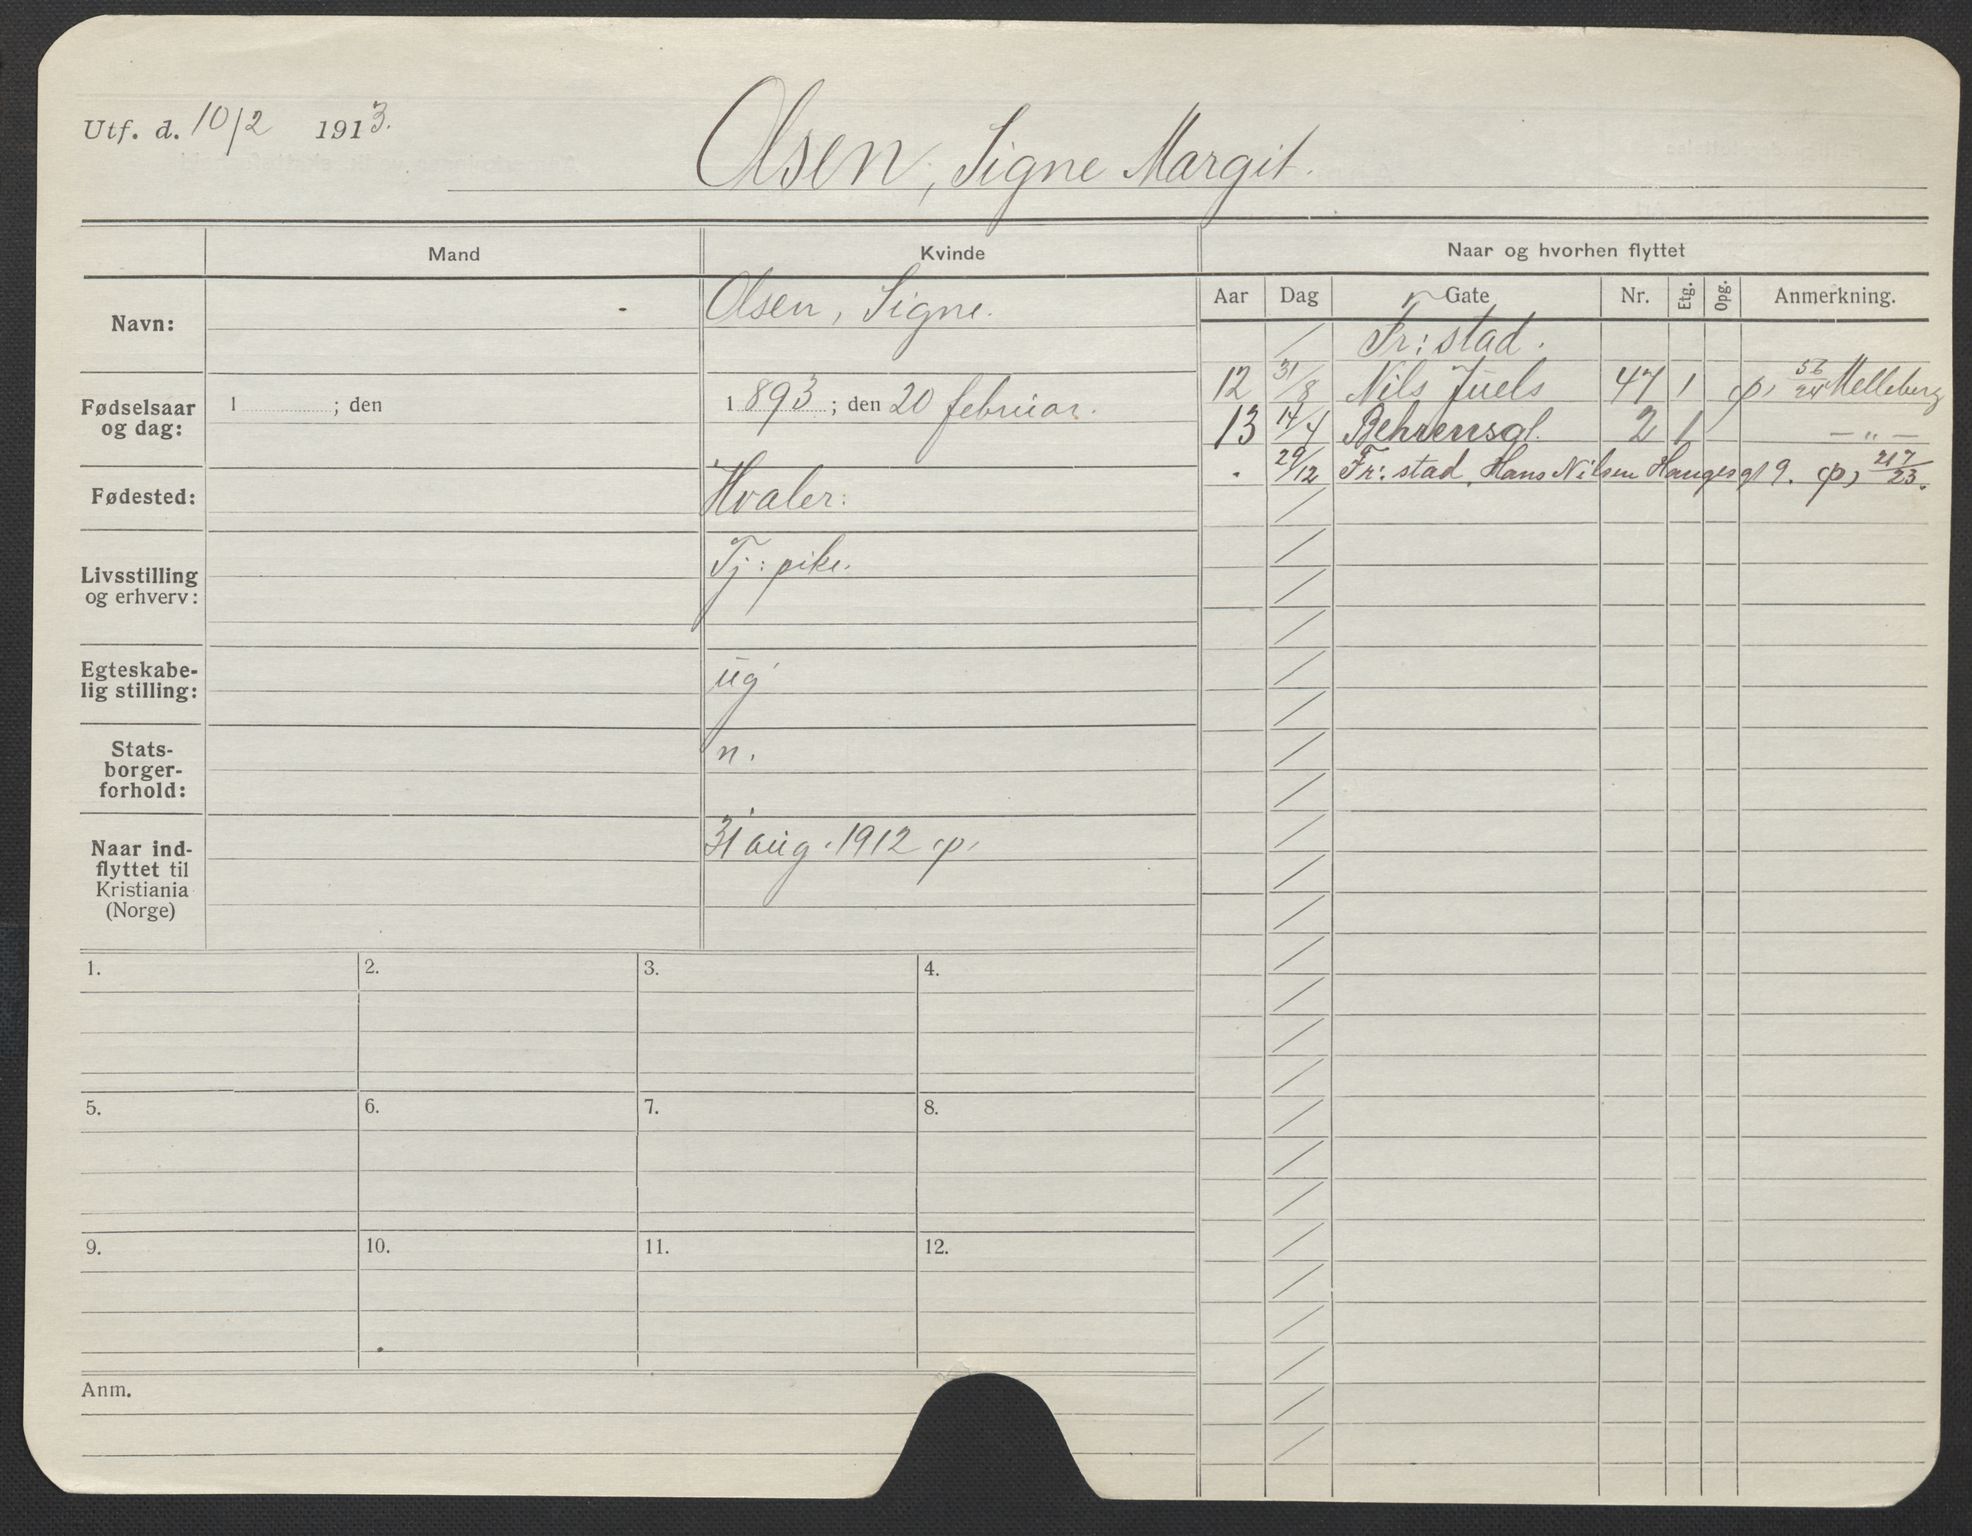 Utf. d. 10/2 1913.
Olsen, Signe Margit.
Mand
Kvinde
Naar og hvorhen flyttet
Navn:
Olsen, Signe.
Fødselsaar og dag:
1 ; den
1893; den 20 februar.
Fødested:
Hvaler.
Livsstilling og erhverv:
Tj: pike.
Egteskabe-
lig stilling:
ug
Stats-
borger-
forhold:
n.
Naar ind-
flyttet til
Kristiania
(Norge)
31 aug. 1912 p.
Aar Dag Gate Nr. Etg. Opg. Anmerkning.
/ Fr: stad.
12 31/8 Nils Juels 47 1 p, 56/24 Melleberg
13 14/4 Behrensgt. 2 1 — " —
. 29/12 Fr: stad, Hans Nilsen Haugesgt 9. p, 217/23.
1. 2. 3. 4.
5. 6. 7. 8.
9. 10. 11. 12.
Anm.